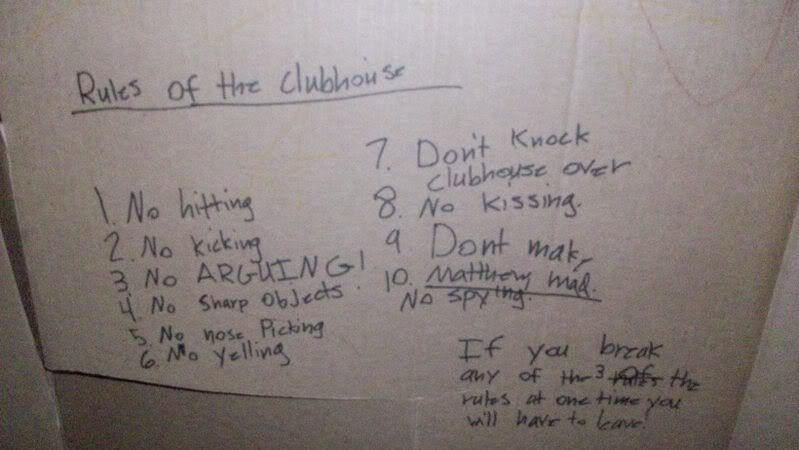 Rules of the clubhouse
1. No hitting
2. No kicking
3. No ARGUING!
4. No sharp objects.
5. No nose Picking
6. No yelling
7. Don't Knock
clubhouse over
8. No kissing.
9. Dont make
10. Matthew mad.
No spying.
If you break
any of the 3 rules the
rules at one time you
will have to leave!